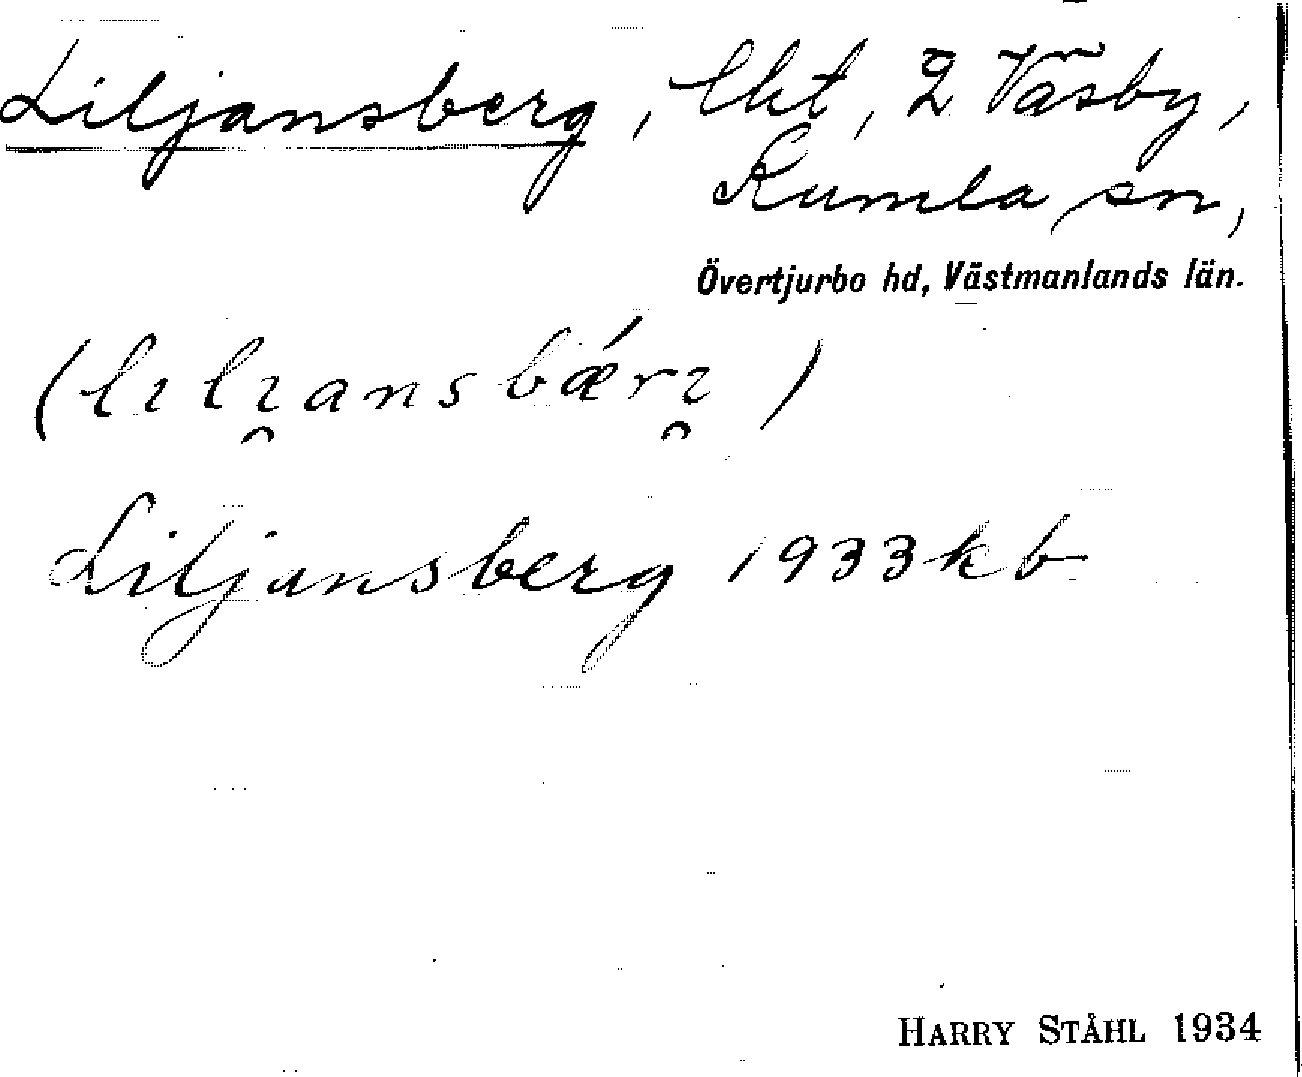 Liljansberg, lht, 2 Väsby,
Kumla sn,
Övertjurbo hd, Västmanlands län.
(lılı̯ansbǽrı̯)
Liljansberg 1933 kb
HARRY STÅHL 1934